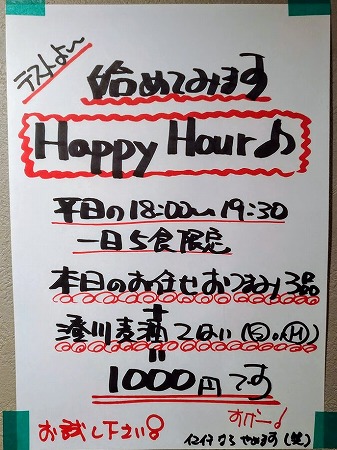 テストよ〜
始めてみます
Happy Hour♪
平日の18:00〜19:30
一日5食限定
本日のお任せおつまみ3品
+
澄川麦酒 1ぱい
=
1000円です
お試し下さい
やめます(笑)